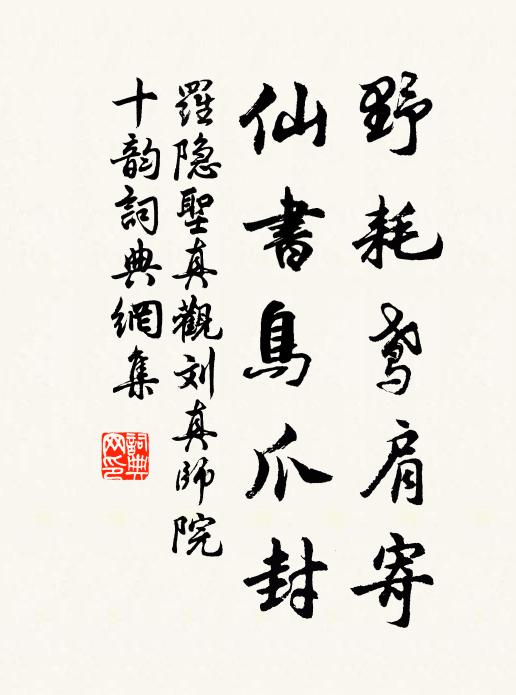 野耗鸢肩寄
仙書鳥爪封
羅隐聖真觀刘真師院
十韵詞典網集
詞典网印